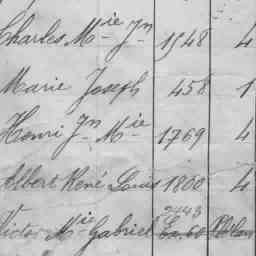 Charles Mie Jn 1548 4
Marie Joseph 458 1
Henri Jn Mie 1769 4
Albert René Louis 1800 4
2443
Victor Mie Gabriel